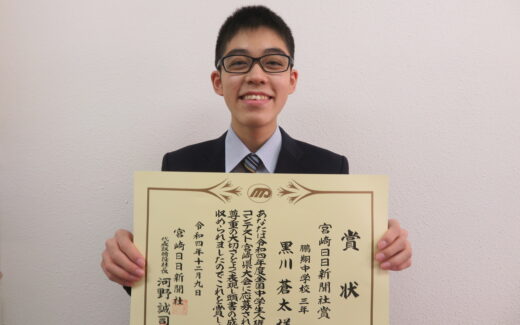 賞状
宮崎日日新聞社賞
鵬翔中学校 三年
黒川 蒼太様
あなたは令和四年度全国中学生人権
コンテスト宮崎県大会に応募され
尊重の大切さをよく表現し頭書の成
収められましたのでこれを賞し
令和四年十二月九日
宮崎日日新聞社
代表取締役社長 河野誠司